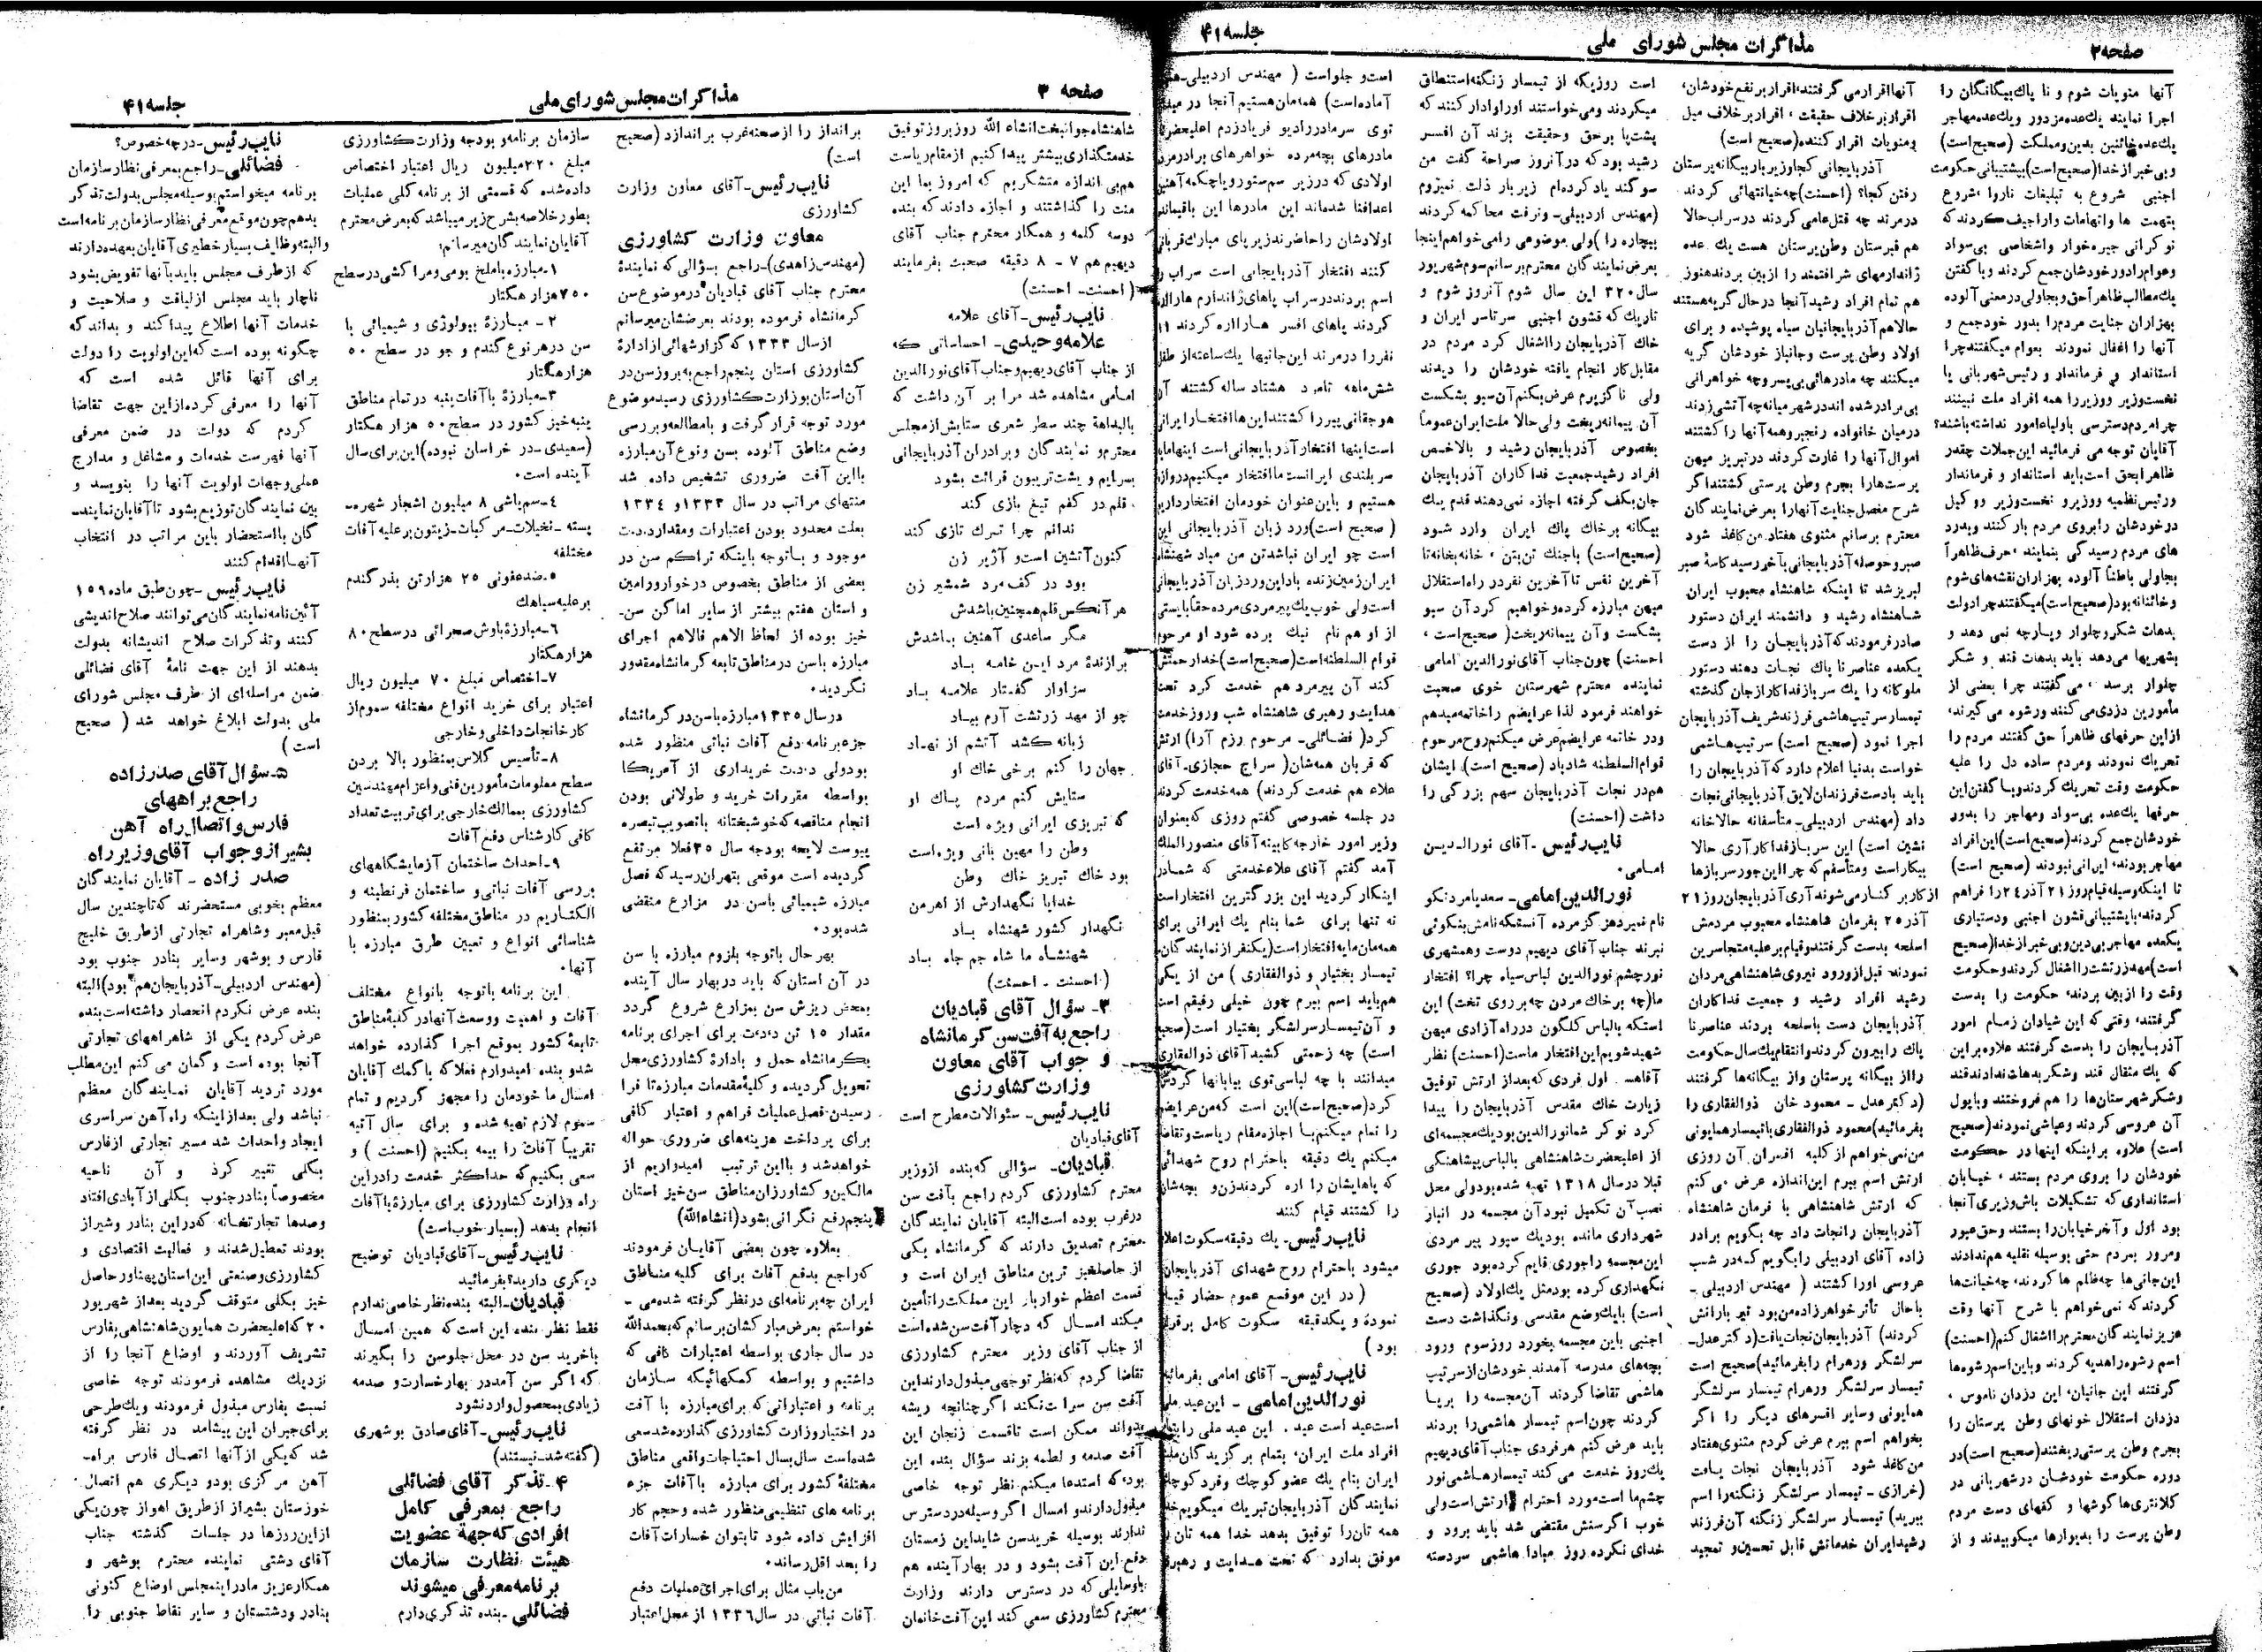 صفحه۲
مذاکرات مجلس شورای ملی
جلسه ۴۱
آنها منویات شوم و نا پاك بیگانگان را
اجرا نمایند یك‌عده مزدور ویك‌عده مهاجر
یك‌عده خائنین بدین ومملکت (صحیح‌است)
وبی خبر از خدا (صحیح است) بپشتیبانی حکومت
اجنبی شروع به تبلیغات ناروا، شروع
بتهمت ها واتهامات واراجیف کردند که
نوکرانی جیره‌خوار واشخاصی بی‌سواد
وعوام را دور خودشان جمع کردند وباگفتن
یك مطالب ظاهراً حق وبجا ولی در معنی آلوده
بهزاران جنایت مردم را بدور خود جمع و
آنها را اغفال نمودند بعوام میگفتند چرا
استاندار و فرماندار و رئیس شهربانی یا
نخست‌وزیر ووزیر را همه افراد ملت نبینند
چرا مردم دسترسی باولیاء امور نداشته باشند؟
آقایان توجه می فرمائید این جملات چقدر
ظاهراً بحق است باید استاندار و فرماندار
ورئیس نظمیه ووزیر و نخست‌وزیر و وکیل
در خودشان را بروی مردم باز کنند وبدرد
های مردم رسیدگی بنمایند، حرف ظاهراً
بجا ولی باطناً آلوده بهزاران نقشه‌های شوم
وخائنانه بود (صحیح است) میگفتند چرا دولت
بدهات شکر و چلوار و پارچه نمی دهد و
بشهریها می‌دهد باید بدهات قند و شکر
چلوار برسد، می‌گفتند چرا بعضی از
مأمورین دزدی می‌کنند ورشوه می گیرند،
از این حرفهای ظاهراً حق گفتند مردم را
تحریك نمودند ومردم ساده دل را علیه
حکومت وقت تحریك کردند وبا گفتن این
حرفها یك‌عده بی‌سواد ومهاجر را بدور
خودشان جمع کردند (صحیح است) این افراد
مهاجر بودند، ایرانی نبودند (صحیح است)
تا اینکه وسیله قیام روز ۲۱ آذر ۲٤ را فراهم
کردند، با پشتیبانی قشون اجنبی ودستیاری
یکعده مهاجر بی‌دین وبی خبر از خدا (صحیح
است) مهد زرتشت را اشغال کردند وحکومت
وقت را از بین بردند، حکومت را بدست
گرفتند، وقتی که این شیادان زمام امور
آذربایجان را بدست گرفتند علاوه بر این
که یك مثقال قند وشکر بدهات ندادند قند
وشکر شهرستان‌ها را هم فروختند وباپول
آن عروسی کردند وعیاشی نمودند (صحیح
است) علاوه بر اینکه اینها در حکومت
خودشان را بروی مردم بستند، خیابان
استانداری که تشکیلات باش‌وزیری آنجا
بود اول و آخر خیابان را بستند وحق عبور
ومرور بمردم حتی بوسیله نقلیه هم ندادند
این جانی‌ها چه ظلم ها کردند، چه خیانت‌ها
کردند که نمی‌خواهم با شرح آنها وقت
عزیز نمایندگان محترم را اشغال کنم (احسنت)
اسم رشوه را هدیه کردند وباین اسم رشوه‌ها
گرفتند این جانیان، این دزدان ناموس،
دزدان استقلال خونهای وطن پرستان را
بجرم وطن پرستی ریختند (صحیح است) در
دوره حکومت خودشان در شهربانی در
کلانتری‌ها گوشها و کفهای دست مردم
وطن پرست را بدیوارها میکوبیدند و از
آنها اقرار می گرفتند، اقرار بر نفع خودشان،
اقرار بر خلاف حقیقت، اقرار بر خلاف میل
ومنویات اقرار کننده (صحیح است)
آذربایجانی کجا وزیر بار بیگانه پرستان
رفتن کجا؟ (احسنت) چه خیانتهائی کردند
در مرند چه قتل‌عامی کردند در سراب حالا
هم قبرستان وطن‌پرستان هست یك عده
ژاندارمهای شرافتمند را از بین بردند هنوز
هم تمام افراد رشید آنجا در حال گریه هستند
حالا هم آذربایجانیان سیاه پوشیده و برای
اولاد وطن پرست وجانباز خودشان گریه
میکنند چه مادرهائی بی‌پسر وچه خواهرانی
بی‌برادر شده اند در شهر میانه چه آتشی زدند
درمیان خانواده رنجبر وهمه آنها را کشتند
اموال آنها را غارت کردند در تبریز میهن
پرست‌ها را بجرم وطن پرستی کشتند اگر
شرح مفصل جنایت آنها را بعرض نمایندگان
محترم برسانم مثنوی هفتاد من کاغذ شود
صبر و حوصله آذربایجانی بآخر رسید کاسهٔ صبر
لبریز شد تا اینکه شاهنشاه محبوب ایران
شاهنشاه رشید و دانشمند ایران دستور
صادر فرمودند که آذربایجان را از دست
یکعده عناصر ناپاك نجات دهند دستور
ملوکانه را یك سرباز فداکار از جان گذشته
تیمسار سرتیپ هاشمی فرزند شریف آذربایجان
اجرا نمود (صحیح است) سرتیپ هاشمی
خواست بدنیا اعلام دارد که آذربایجان را
باید بادست فرزندان لایق آذربایجانی نجات
داد (مهندس اردبیلی- متأسفانه حالا خانه
نشین است) این سرباز فداکار آری حالا
بیکار است ومتأسفم که چرا این جور سربازها
از کار بر کنار می شوند آری آذربایجان روز ۲۱
آذر ۲۵ بفرمان شاهنشاه محبوب مردمش
اسلحه بدست گرفتند وقیام بر علیه متجاسرین
نمودند قبل از ورود نیروی شاهنشاهی مردان
رشید افراد رشید و جمعیت فداکاران
آذربایجان دست باسلحه بردند عناصر نا
پاك را بیرون کردند وانتقام یك سال حکومت
را از بیگانه پرستان واز بیگانه‌ها گرفتند
(دکتر عدل - محمود خان ذوالفقاری را
بفرمائید) محمود ذوالفقاری با تیمسار همایونی
من نمی‌خواهم از کلیه افسران آن روزی
ارتش اسم ببرم این اندازه عرض می کنم
که ارتش شاهنشاهی با فرمان شاهنشاه
آذربایجان را نجات داد چه بگویم برادر
زاده آقای اردبیلی را بگویم که در شب
عروسی او را کشتند (مهندس اردبیلی -
باحال تأثر خواهرزاده من بود تیر بارانش
کردند) آذربایجان نجات یافت (دکتر عدل-
سرلشگر ورهرام را بفرمائید) صحیح است
تیمسار سرلشگر ورهرام تیمسار سرلشگر
همایونی وسایر افسرهای دیگر را اگر
بخواهم اسم ببرم عرض کردم مثنوی هفتاد
من کاغذ شود آذربایجان نجات یافت
(خرازی - تیمسار سرلشگر زنگنه را اسم
ببرید) تیمسار سرلشگر زنگنه آن فرزند
رشید ایران خدماتش قابل تحسین و تمجید
است روزیکه از تیمسار زنگنه استنطاق
میکردند ومی‌خواستند او را وادار کنند که
پشت‌پا بر حق وحقیقت بزند آن افسر
رشید بود که در آنروز صراحة گفت من
سوگند یاد کرده‌ام زیر بار ذلت نمیروم
(مهندس اردبیلی- ونرفت محاکمه کردند
بیچاره را) ولی موضوعی را می خواهم اینجا
بعرض نمایندگان محترم برسانم سوم شهریور
سال ۳۲۰ این سال شوم آنروز شوم و
تاریك که قشون اجنبی سرتاسر ایران و
خاك آذربایجان را اشغال کرد مردم در
مقابل کار انجام یافته خودشان را دیدند
ولی ناگزیرم عرض بکنم آن سبو بشکست
آن پیمانه ریخت ولی حالا ملت ایران عموماً
بخصوص آذربایجان رشید و بالاخص
افراد رشید جمعیت فداکاران آذربایجان
جان بکف گرفته اجازه نمی‌دهند قدم یك
بیگانه بر خاك پاك ایران وارد شود
(صحیح است) باجنك تن‌بتن، خانه بخانه تا
آخرین نفس تا آخرین نفر در راه استقلال
میهن مبارزه کرده وخواهیم کرد آن سبو
بشکست وآن پیمانه ریخت (صحیح است،
احسنت) چون جناب آقای نورالدین امامی
نماینده محترم شهرستان خوی صحبت
خواهند فرمود لذا عرایضم را خاتمه میدهم
ودر خاتمه عرایضم عرض میکنم روح مرحوم
قوام السلطنه شادباد (صحیح است). ایشان
هم در نجات آذربایجان سهم بزرگی را
داشت (احسنت)
نایب رئیس - آقای نورالدین
امامی.
نورالدین امامی- سعدیا مرد نکو
نام نمیرد هرگز مرده آنستکه نامش بنکوئی
نبرند جناب آقای دیهیم دوست وهمشهری
نورچشم نورالدین لباس سیاه چرا؟ افتخار
ما (چه بر خاك مردن چه بر روی تخت) این
استکه بالباس گلگون در راه آزادی میهن
شهید شویم این افتخار ماست (احسنت) نظر
آقاهست. اول فردی که بعد از ارتش توفیق
زیارت خاك مقدس آذربایجان را پیدا
کرد نوکر شما نورالدین بود یك مجسمه‌ای
از اعلیحضرت شاهنشاهی بالباس پیشاهنگی
قبلا در سال ۱۳۱۸ تهیه شده بود ولی محل
نصب آن تکمیل نبود آن مجسمه در انبار
شهرداری مانده بود یك سپور پیر مردی
این مجسمه را جوری قایم کرده بود جوری
نگهداری کرده بود مثل یك اولاد (صحیح
است) بایك وضع مقدسی ونگذاشت دست
اجنبی باین مجسمه بخورد روز سوم ورود
بچه‌های مدرسه آمدند خودشان از سرتیپ
هاشمی تقاضا کردند آن مجسمه را برپا
کردند چون اسم تیمسار هاشمی را بردند
باید عرض کنم هر فردی جناب آقای دیهیم
یك روز خدمت می کند تیمسار هاشمی نور
چشم ما است مورد احترام ارتش است ولی
خوب اگر سنش مقتضی شد باید برود و
خدای نکرده روز مبادا هاشمی سردسته
است و جلو است (مهندس اردبیلی-
آماده است) همه‌مان هستیم آنجا در
توی سرمادر رادیو فریاد زدم
مادرهای بچه‌مرده خواهرهای برادر مرده
اولادی که در زیر سم ستور و یا چکمه آهنین
اعدا فنا شده‌اند این مادرها این
اولادشان را حاضرند زیر پای مبارك قربانی
کنند افتخار آذربایجانی است سراب را
اسم بردند در سراب پاهای ژاندارم
کردند پاهای افسر ها را اره کردند ۱۱
نفر را در مرند این جانیها یك ساعته از طفل
شش ماهه تا مرد هشتاد ساله کشتند آن
هوجقانی پیر را کشتند این ها افتخار ایرانی
است اینها افتخار آذربایجانی است
سربلندی ایران است ما افتخار میکنیم
هستیم و باین عنوان خودمان افتخار داریم
(صحیح است) ورد زبان آذربایجانی این
است چو ایران نباشد تن من مباد شهنشاه
ایران زمین زنده باد این ورد زبان آذربایجانی
است ولی خوب یك پیر مردی مرده حقاً بایستی
از او هم نام نیك برده شود او مرحوم
قوام السلطنه است (صحیح است) خدا رحمتش
کند آن پیر مرد هم خدمت کرد تحت
هدایت و رهبری شاهنشاه شب وروز خدمت
کرد (فضائلی- مرحوم رزم آرا) ارتش
که قربان همه‌شان (سراج حجازی- آقای
علاء هم خدمت کردند) همه خدمت کردند
در جلسه خصوصی گفتم روزی که بعنوان
وزیر امور خارجه کابینه آقای منصورالملك
آمد گفتم آقای علاء خدمتی که شما در
اینکار کردید این بزرگترین افتخار است
نه تنها برای شما بنام یك ایرانی برای
همه‌مان مایه افتخار است (یکنفر از نمایندگان-
تیمسار بختیار و ذوالفقاری) من از یکی
هم باید اسم ببرم چون خیلی رفیقم است
و آن تیمسار سرلشگر بختیار است (صحیح
است) چه زحمتی کشید آقای ذوالفقاری
میدانند با چه لباسی توی بیابانها گردش
کرد (صحیح است) این است که من عرایضم
را تمام میکنم با اجازه مقام ریاست وتقاضا
میکنم یك دقیقه باحترام روح شهدائی
که پاهایشان را اره کردند زن و بچه‌شان
را کشتند قیام کنند
نایب رئیس- یك دقیقه سکوت اعلام
میشود باحترام روح شهدای آذربایجان
(در این موقع عموم حضار قیام
نموده و یکدقیقه سکوت کامل برقرار
بود)
نایب رئیس- آقای امامی بفرمائید
نورالدین امامی - این عید ملی
است عید است عید. این عید ملی را بتمام
افراد ملت ایران، بتمام برگزیدگان ملت
ایران بنام یك عضو کوچك وفرد کوچك
نمایندگان آذربایجان تبریك میگویم خدا
همه تان را توفیق بدهد خدا همه تان را
موفق بدارد که تحت هدایت و رهبری
صفحه ۳
مذاکرات مجلس شورای ملی
جلسه ۴۱
شاهنشاه جوانبخت انشاء الله روز بروز توفیق
خدمتگذاری بیشتر پیدا کنیم از مقام ریاست
هم بی اندازه متشکریم که امروز بما این
منت را گذاشتند و اجازه دادند که بنده
دوسه کلمه و همکار محترم جناب آقای
دیهیم هم ۷ - ۸ دقیقه صحبت بفرمایند
(احسنت- احسنت)
نایب رئیس- آقای علامه
علامه وحیدی- احساساتی که
از جناب آقای دیهیم و جناب آقای نورالدین
امامی مشاهده شد مرا بر آن داشت که
بالبداهة چند سطر شعری ستایش از مجلس
محترم و نمایندگان و برادران آذربایجانی
بسرایم و پشت تریبون قرائت بشود
قلم در کفم تیغ بازی کند
ندانم چرا ترك تازی کند
کنون آتشین است و آژیر زن
بود در کف مرد شمشیر زن
هر آنکس قلم همچنین باشدش
مگر ساعدی آهنین باشدش
برازندهٔ مرد این خامه باد
سزاوار گفتار علامه باد
چو از مهد زرتشت آرم بیاد
زبانه کشد آتشم از نهاد
جهان را کنم برخی خاك او
ستایش کنم مردم پاك او
که تبریزی ایرانی ویژه است
وطن را مهین بانی ویژه است
بود خاك تبریز خاك وطن
خدایا نگهدارش از اهرمن
نگهدار کشور شهنشاه باد
شهنشاه ما شاه جم جاه باد
(احسنت - احسنت)
۳- سؤال آقای قبادیان
راجع به آفت سن کرمانشاه
و جواب آقای معاون
وزارت کشاورزی
نایب رئیس- سئوالات مطرح است
آقای قبادیان
قبادیان- سؤالی که بنده از وزیر
محترم کشاورزی کردم راجع بآفت سن
در غرب بوده است البته آقایان نمایندگان
محترم تصدیق دارند که کرمانشاه یکی
از حاصلخیز ترین مناطق ایران است و
قسمت اعظم خواربار این مملکت را تأمین
میکند امسال که دچار آفت سن شده است
از جناب آقای وزیر محترم کشاورزی
تقاضا کردم که نظر توجهی مبذول دارند این
آفت سن سرایت نکند اگر چنانچه ریشه
بدواند ممکن است تا قسمت زنجان این
آفت صدمه و لطمه بزند سؤال بنده این
بود، که استدعا میکنم نظر توجه خاصی
مبذول دارند و امسال اگر وسیله در دسترس
ندارند بوسیله خرید سن شاید این زمستان
دفع این آفت بشود و در بهار آینده هم
باوسایلی که در دسترس دارند وزارت
محترم کشاورزی سعی کند این آفت خانمان
برانداز را از صحنه غرب براندازد (صحیح
است)
نایب رئیس- آقای معاون وزارت
کشاورزی
معاون وزارت کشاورزی
(مهندس زاهدی)- راجع بسؤالی که نمایندهٔ
محترم جناب آقای قبادیان در موضوع سن
کرمانشاه فرموده بودند بعرضشان میرسانم
از سال ۱۳۳۳ که گزارشهائی از ادارهٔ
کشاورزی استان پنجم راجع به بروز سن در
آن استان بوزارت کشاورزی رسید موضوع
مورد توجه قرار گرفت و بامطالعه و بررسی
وضع مناطق آلوده بسن و نوع آن مبارزه
بااین آفت ضروری تشخیص داده شد
منتهای مراتب در سال ۱۳۳۳ و ۱۳۳٤
بعلت محدود بودن اعتبارات ومقدار د.د.ت
موجود و باتوجه باینکه تراکم سن در
بعضی از مناطق بخصوص در خوار و ورامین
و استان هفتم بیشتر از سایر اماکن سن-
خیز بوده از لحاظ الاهم فالاهم اجرای
مبارزه باسن در مناطق تابعه کرمانشاه مقدور
نگردید.
در سال ۱۳۳۵ مبارزه باسن در کرمانشاه
جزء برنامه دفع آفات نباتی منظور شده
بود ولی د.د.ت خریداری از آمریکا
بواسطه مقررات خرید و طولانی بودن
انجام مناقصه که خوشبختانه باتصویب تبصره
پیوست لایحه بودجه سال ۳۵ فعلا مرتفع
گردیده است موقعی بتهران رسید که فصل
مبارزه شیمیائی باسن در مزارع منقضی
شده بود.
بهر حال باتوجه بلزوم مبارزه با سن
در آن استان که باید در بهار سال آینده
بمحض ریزش سن بمزارع شروع گردد
مقدار ۱۵ تن د.د.ت برای اجرای برنامه
بکرمانشاه حمل و بادارهٔ کشاورزی محل
تحویل گردیده و کلیهٔ مقدمات مبارزه تا فرا
رسیدن فصل عملیات فراهم و اعتبار کافی
برای پرداخت هزینه‌های ضروری حواله
خواهد شد و بااین ترتیب امیدواریم از
مالکین و کشاورزان مناطق سن خیز استان
پنجم رفع نگرانی بشود (انشاءالله)
بعلاوه چون بعضی آقایان فرمودند
که راجع بدفع آفات برای کلیه مناطق
ایران چه برنامه‌ای در نظر گرفته شده می -
خواستم بعرض مبارکشان برسانم که بحمدالله
در سال جاری بواسطه اعتبارات کافی که
داشتیم و بواسطه کمکهائیکه سازمان
برنامه و اعتباراتی که برای مبارزه با آفت
در اختیار وزارت کشاورزی گذارده شد سعی
شده است سال بسال احتیاجات واقعی مناطق
مختلفهٔ کشور برای مبارزه باآفات جزء
برنامه های تنظیمی منظور شده وحجم کار
افزایش داده شود تابتوان خسارات آفات
را بحد اقل رساند.
من باب مثال برای اجرای عملیات دفع
آفات نباتی در سال ۱۳۳٦ از محل اعتبار
سازمان برنامه و بودجه وزارت کشاورزی
مبلغ ۳۲۰ میلیون ریال اعتبار اختصاص
داده شده که قسمتی از برنامه کلی عملیات
بطور خلاصه بشرح زیر میباشد که بعرض محترم
آقایان نمایندگان میرسانم:
۱- مبارزه باملخ بومی ومراکشی در سطح
۷۵۰ هزار هکتار
۲ - مبارزهٔ بیولوژی و شیمیائی با
سن در هر نوع گندم و جو در سطح ۵۰
هزار هکتار
۳- مبارزهٔ باآفات پنبه در تمام مناطق
پنبه خیز کشور در سطح ۵۰ هزار هکتار
(سعیدی- در خراسان نبوده) این برای سال
آینده است.
٤- سم‌پاشی ۸ میلیون اشجار شهره-
پسته - نخیلات- مرکبات- زیتون بر علیه آفات
مختلفه
۵- ضدعفونی ۲۵ هزار تن بذر گندم
بر علیه سیاهك
٦- مبارزهٔ باوش صحرائی در سطح ۸۰
هزار هکتار
۷- اختصاص مبلغ ۷۰ میلیون ریال
اعتبار برای خرید انواع مختلفه سموم از
کارخانجات داخلی و خارجی
۸- تأسیس کلاس بمنظور بالا بردن
سطح معلومات مأمورین فنی و اعزام مهندسین
کشاورزی بممالك خارجی برای تربیت تعداد
کافی کارشناس دفع آفات
۹- احداث ساختمان آزمایشگاههای
بررسی آفات نباتی و ساختمان قرنطینه و
الکتاریم در مناطق مختلفه کشور بمنظور
شناسائی انواع و تعیین طرق مبارزه با
آنها.
این برنامه باتوجه بانواع مختلف
آفات و اهمیت ووسعت آنها در کلیهٔ مناطق
تابعهٔ کشور بموقع اجرا گذارده خواهد
شد و بنده امیدوارم فعلا که باکمك آقایان
امسال ما خودمان را مجهز کردیم و تمام
سموم لازم تهیه شده و برای سال آتیه
تقریباً آفات را بیمه بکنیم (احسنت) و
سعی بکنیم که حداکثر خدمت را در این
راه وزارت کشاورزی برای مبارزهٔ باآفات
انجام بدهد (بسیار خوب است)
نایب رئیس- آقای قبادیان توضیح
دیگری دارید؟ بفرمائید
قبادیان- البته بنده نظر خاصی ندارم
فقط نظر بنده این است که همین امسال
باخرید سن در محل جلو سن را بگیرند
که اگر سن آمد در بهار خسارت و صدمه
زیادی بمحصول وارد نشود
نایب رئیس- آقای صادق بوشهری
(گفته شد- نیستند)
۴- تذکر آقای فضائلی
راجع بمعرفی کامل
افرادی که جهة عضویت
هیئت نظارت سازمان
برنامه معرفی میشوند
فضائلی- بنده تذکری دارم
نایب رئیس- درچه خصوص؟
فضائلی- راجع بمعرفی نظار سازمان
برنامه میخواستم بوسیله مجلس بدولت تذکر
بدهم چون موقع معرفی نظار سازمان برنامه است
والبته وظایف بسیار خطیری آقایان بعهده دارند
که از طرف مجلس باید بآنها تفویض بشود
ناچار باید مجلس از لیاقت و صلاحیت و
خدمات آنها اطلاع پیدا کند و بداند که
چگونه بوده است که این اولویت را دولت
برای آنها قائل شده است که
آنها را معرفی کرده از این جهت تقاضا
کردم که دولت در ضمن معرفی
آنها فهرست خدمات و مشاغل و مدارج
عملی وجهات اولویت آنها را بنویسد و
بین نمایندگان توزیع بشود تا آقایان نمایند-
گان بااستحضار باین مراتب در انتخاب
آنها اقدام کنند
نایب رئیس - چون طبق ماده ۱۵۹
آئین نامه نمایندگان می‌توانند صلاح اندیشی
کنند وتذکرات صلاح اندیشانه بدولت
بدهند از این جهت نامهٔ آقای فضائلی
ضمن مراسله‌ای از طرف مجلس شورای
ملی بدولت ابلاغ خواهد شد (صحیح
است)
۵- سؤال آقای صدرزاده
راجع براههای
فارس و اتصال راه آهن
بشیراز و جواب آقای وزیر راه
صدرزاده - آقایان نمایندگان
معظم بخوبی مستحضرند که تاچندین سال
قبل معبر وشاهراه تجارتی از طریق خلیج
فارس و بوشهر وسایر بنادر جنوب بود
(مهندس اردبیلی- آذربایجان هم بود) البته
بنده عرض نکردم انحصار داشته است بنده
عرض کردم یکی از شاهراههای تجارتی
آنجا بوده است و گمان می کنم این مطلب
مورد تردید آقایان نمایندگان معظم
نباشد ولی بعد از اینکه راه آهن سراسری
ایجاد واحداث شد مسیر تجارتی از فارس
بکلی تغییر کرد و آن ناحیه
مخصوصاً بنادر جنوب بکلی از آبادی افتاد
وصدها تجارتخانه که در این بنادر وشیراز
بودند تعطیل شدند و فعالیت اقتصادی و
کشاورزی وصنعتی این استان پهناور حاصل
خیز بکلی متوقف گردید بعد از شهریور
۲۰ که اعلیحضرت همایون شاهنشاهی بفارس
تشریف آوردند و اوضاع آنجا را از
نزدیك مشاهده فرمودند توجه خاصی
نسبت بفارس مبذول فرمودند ویك طرحی
برای جبران این پیشامد در نظر گرفته
شد که یکی از آنها اتصال فارس براه-
آهن مرکزی بود و دیگری هم اتصال
خوزستان بشیراز از طریق اهواز چون یکی
از این روزها در جلسات گذشته جناب
آقای دشتی نماینده محترم بوشهر و
همکار عزیز ما در اینمجلس اوضاع کنونی
بنادر ودشتستان و سایر نقاط جنوبی را